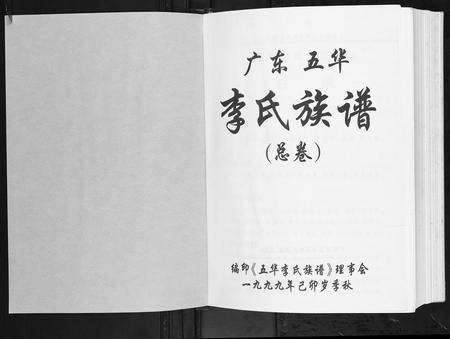 广东 五华
李氏族谱
(总卷)
编印《五华李氏族谱》理事会
一九九九年己卯岁季秋